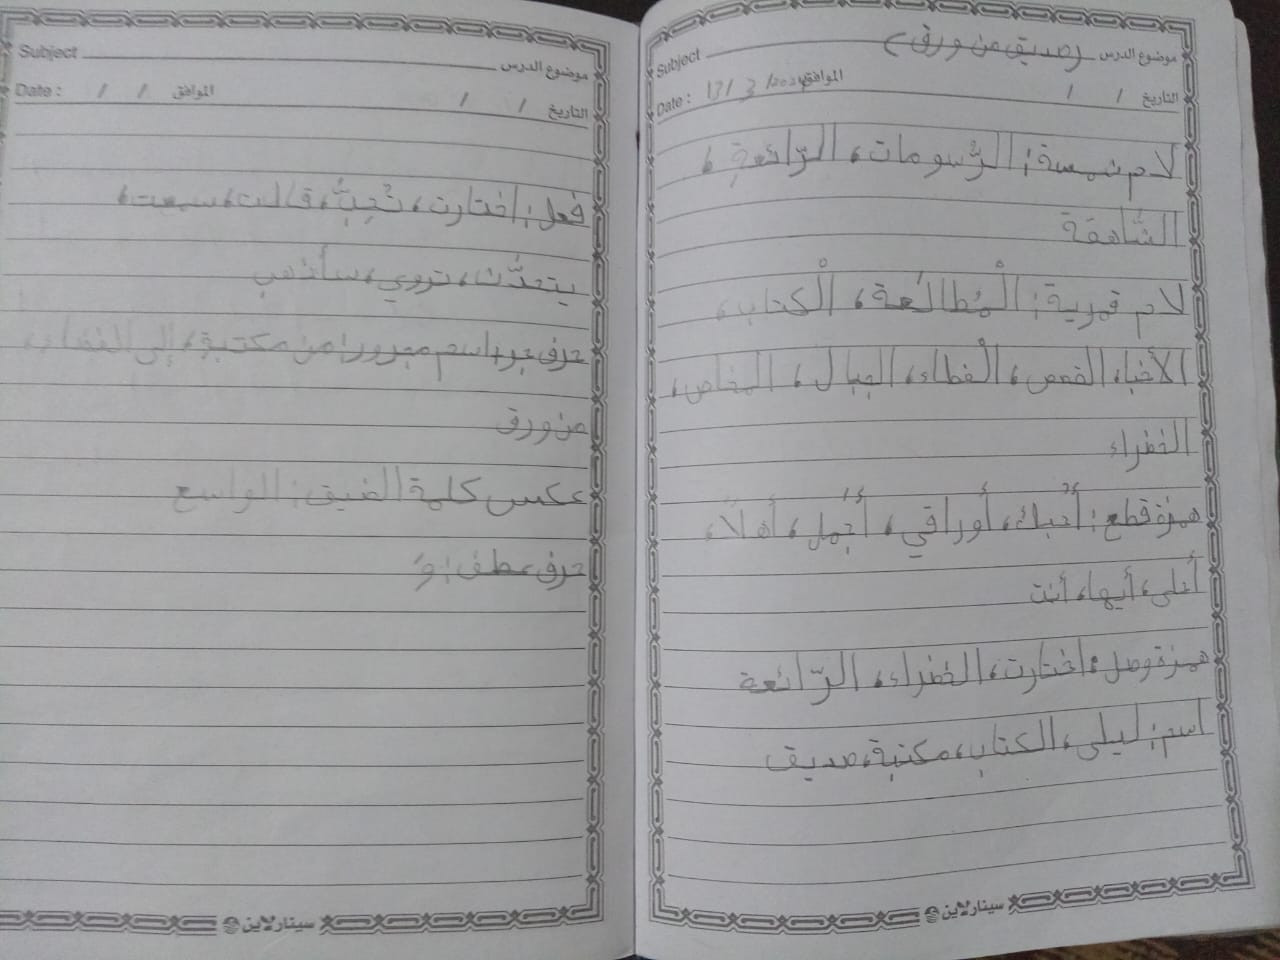 Subject موضوع الدرس (صديق من ورق)
Date : 13/ 3 /2024 الموافق / / التاريخ
لام شمسة: الرُّسومات، الرَّائعةِ،
الشَّاهقة
لام قمرية: الْمُطالَعة، الْكتاب،
الأخبا، القصص، الْفطاء، الجبال،
الخضراء
همزة قطع: أُحبك، أَوراقي، أَجمل، أَهلاً،
أَعلى، أَيها، أَنت
همزة وصل: اختارت، الخضراء، الرَّائعة
اسم: ليلى، الكتاب، مكتبة، صديق
سينارلاين
Subject موضوع الدرس
Date : / / الموافق / / التاريخ
فعل: اختارت، تُحِبُّ، قالت، سمعت،
يتحدَّث، تروي، سأذهب
حرف جر+اسم مجرور: من مكتبةِ، إلى الفضاء،
من ورق
عكس كلمة الضيق: الواسع
حرف عطف: وَ
سينارلاين